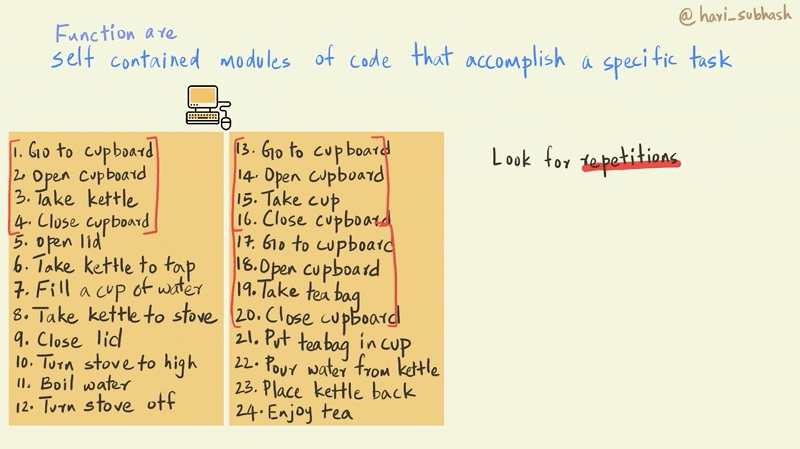 @hari_subhash
Function are
self contained modules of code that accomplish a specific task
1. Go to cupboard
2. Open cupboard
3. Take kettle
4. Close cupboard
5. open lid
6. Take kettle to tap
7. Fill a cup of water
8. Take kettle to stove
9. Close lid
10. Turn stove to high
11. Boil water
12. Turn stove off
13. Go to cupboard
14. Open cupboard
15. Take cup
16. Close cupboard
17. Go to cupboard
18. Open cupboard
19. Take tea bag
20. Close cupboard
21. Put teabag in cup
22. Pour water from kettle
23. Place kettle back
24. Enjoy tea
Look for repetitions